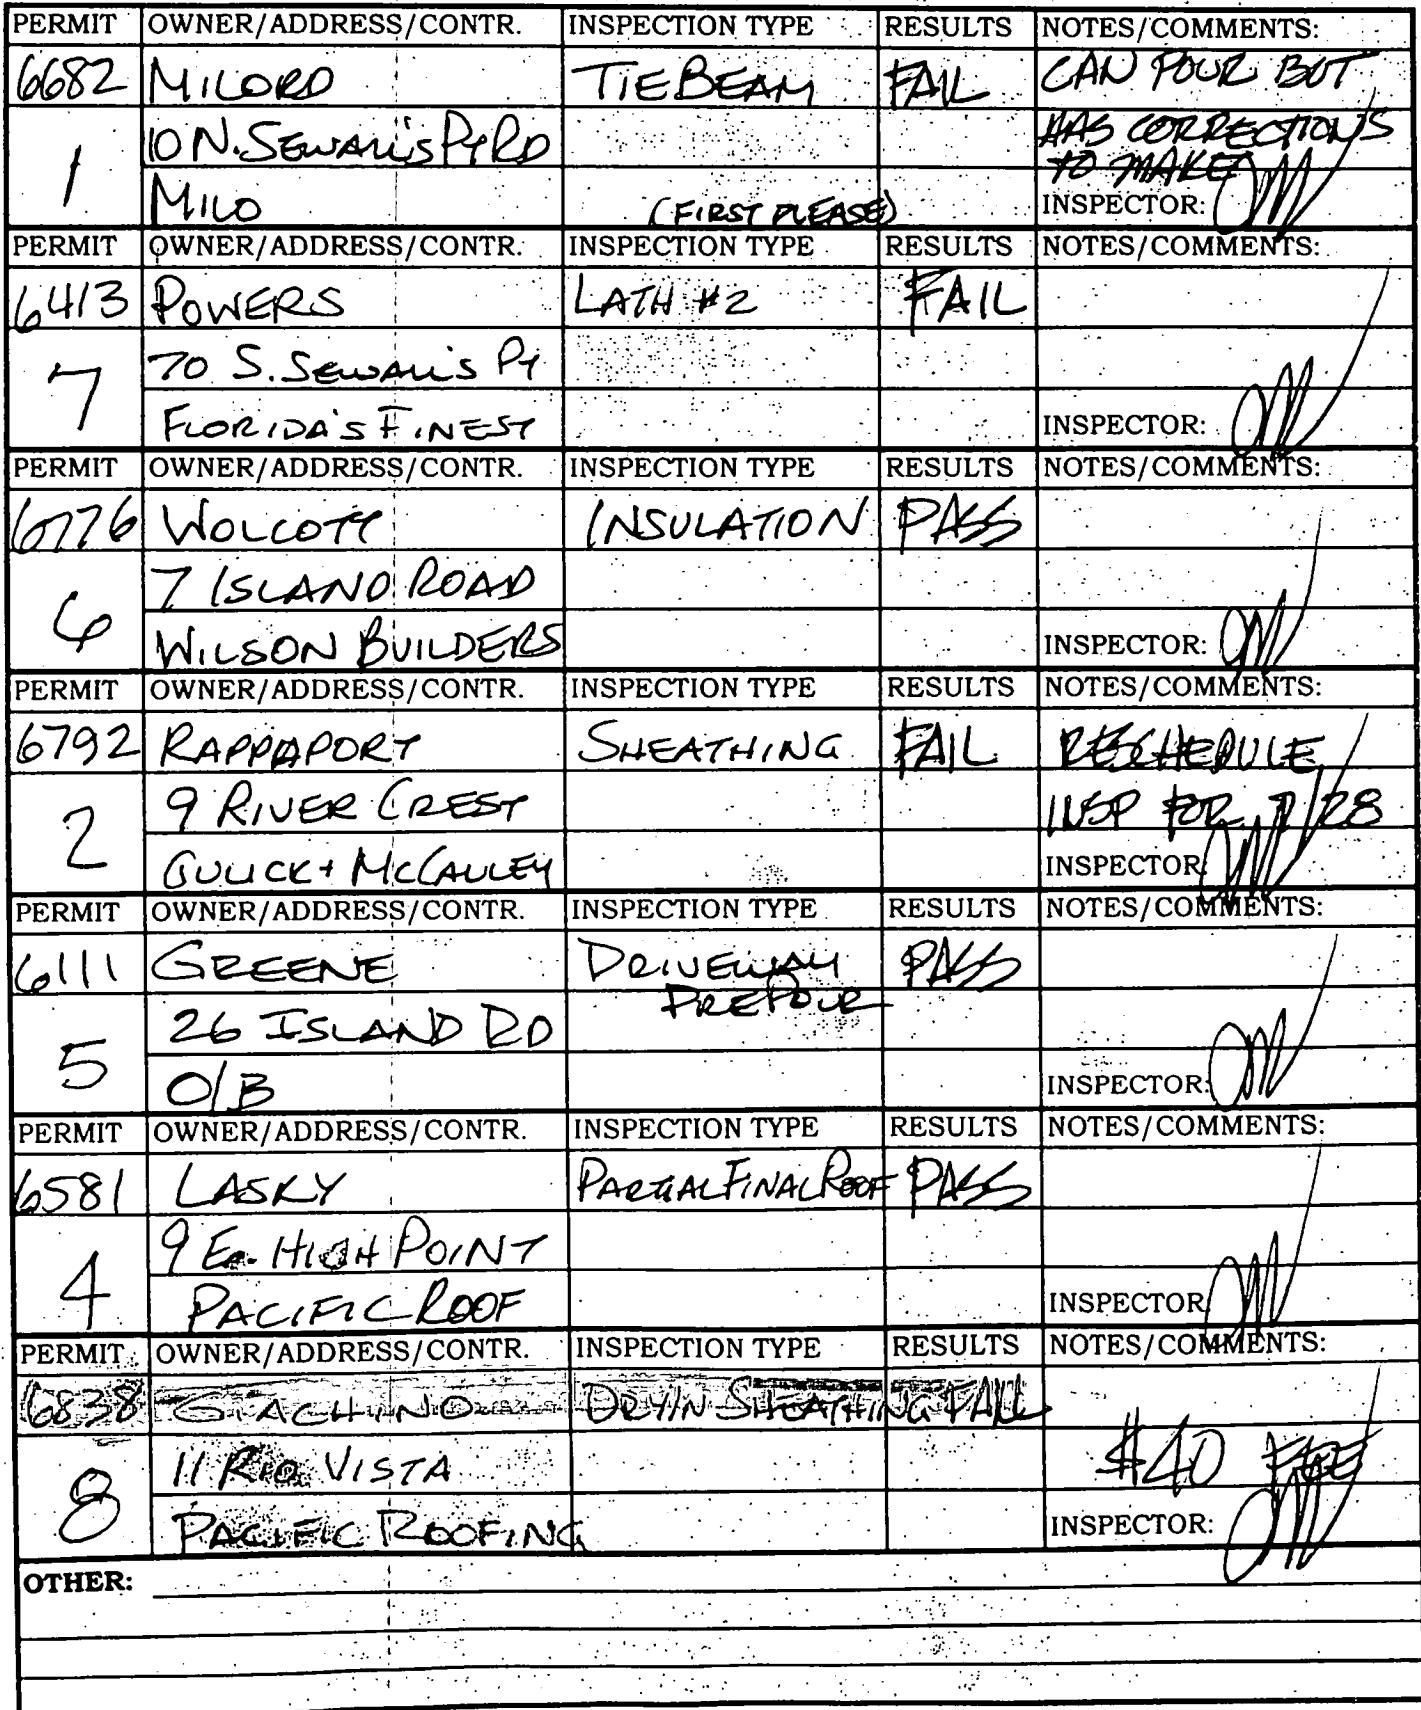 PERMIT OWNER/ADDRESS/CONTR. INSPECTION TYPE RESULTS NOTES/COMMENTS:
6682 MILORD TIE BEAM FAIL CAN POUR BUT
1 10 N. SEWALL'S PT RD HAS CORRECTIONS
TO MAKE
MILO (FIRST PLEASE) INSPECTOR:
PERMIT OWNER/ADDRESS/CONTR. INSPECTION TYPE RESULTS NOTES/COMMENTS:
6413 POWERS LATH #2 FAIL
7 70 S. SEWALL'S PT
FLORIDA'S FINEST INSPECTOR:
PERMIT OWNER/ADDRESS/CONTR. INSPECTION TYPE RESULTS NOTES/COMMENTS:
6776 WOLCOTT INSULATION PASS
6 7 ISLAND ROAD
WILSON BUILDERS INSPECTOR:
PERMIT OWNER/ADDRESS/CONTR. INSPECTION TYPE RESULTS NOTES/COMMENTS:
6792 RAPPAPORT SHEATHING FAIL RESCHEDULE
2 9 RIVER CREST INSP FOR 7/28
GULICK + MCCAULEY INSPECTOR
PERMIT OWNER/ADDRESS/CONTR. INSPECTION TYPE RESULTS NOTES/COMMENTS:
6111 GREENE DRIVEWAY PASS
PREPOUR
5 26 ISLAND RD
O/B INSPECTOR:
PERMIT OWNER/ADDRESS/CONTR. INSPECTION TYPE RESULTS NOTES/COMMENTS:
6581 LASKY PARTIAL FINAL ROOF PASS
4 9 E. HIGH POINT
PACIFIC ROOF INSPECTOR
PERMIT OWNER/ADDRESS/CONTR. INSPECTION TYPE RESULTS NOTES/COMMENTS:
6838 GIACHINO DRYIN SHEATHING FAIL
8 11 RIO VISTA $40 FEE
PACIFIC ROOFING INSPECTOR:
OTHER: